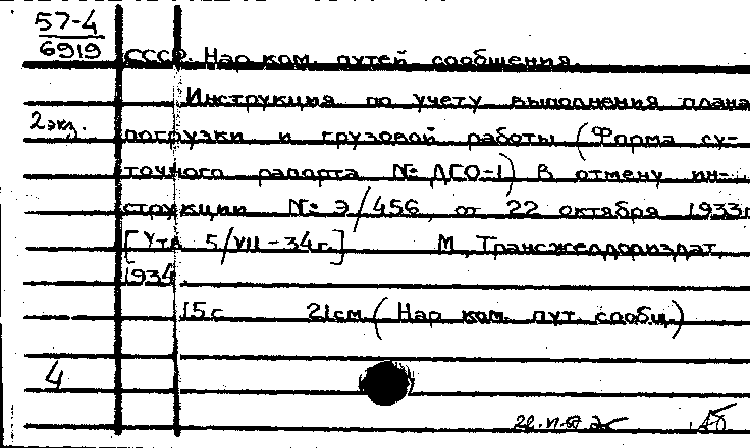 57-4
6919
СССР. Нар. ком. путей сообщения.
Инструкция по учету выполнения плана
2 экз.
погрузки и грузовой работы (Форма су-
точного рапорта №: ДГО-1) В отмену ин-
струкции №: Э/456, от 22 октября 1933 г.
[Утв. 5/VII-34 г.] М., Трансжелдориздат,
1934.
15 с. 21 см. (Нар. ком. пут. сообщ.)
4